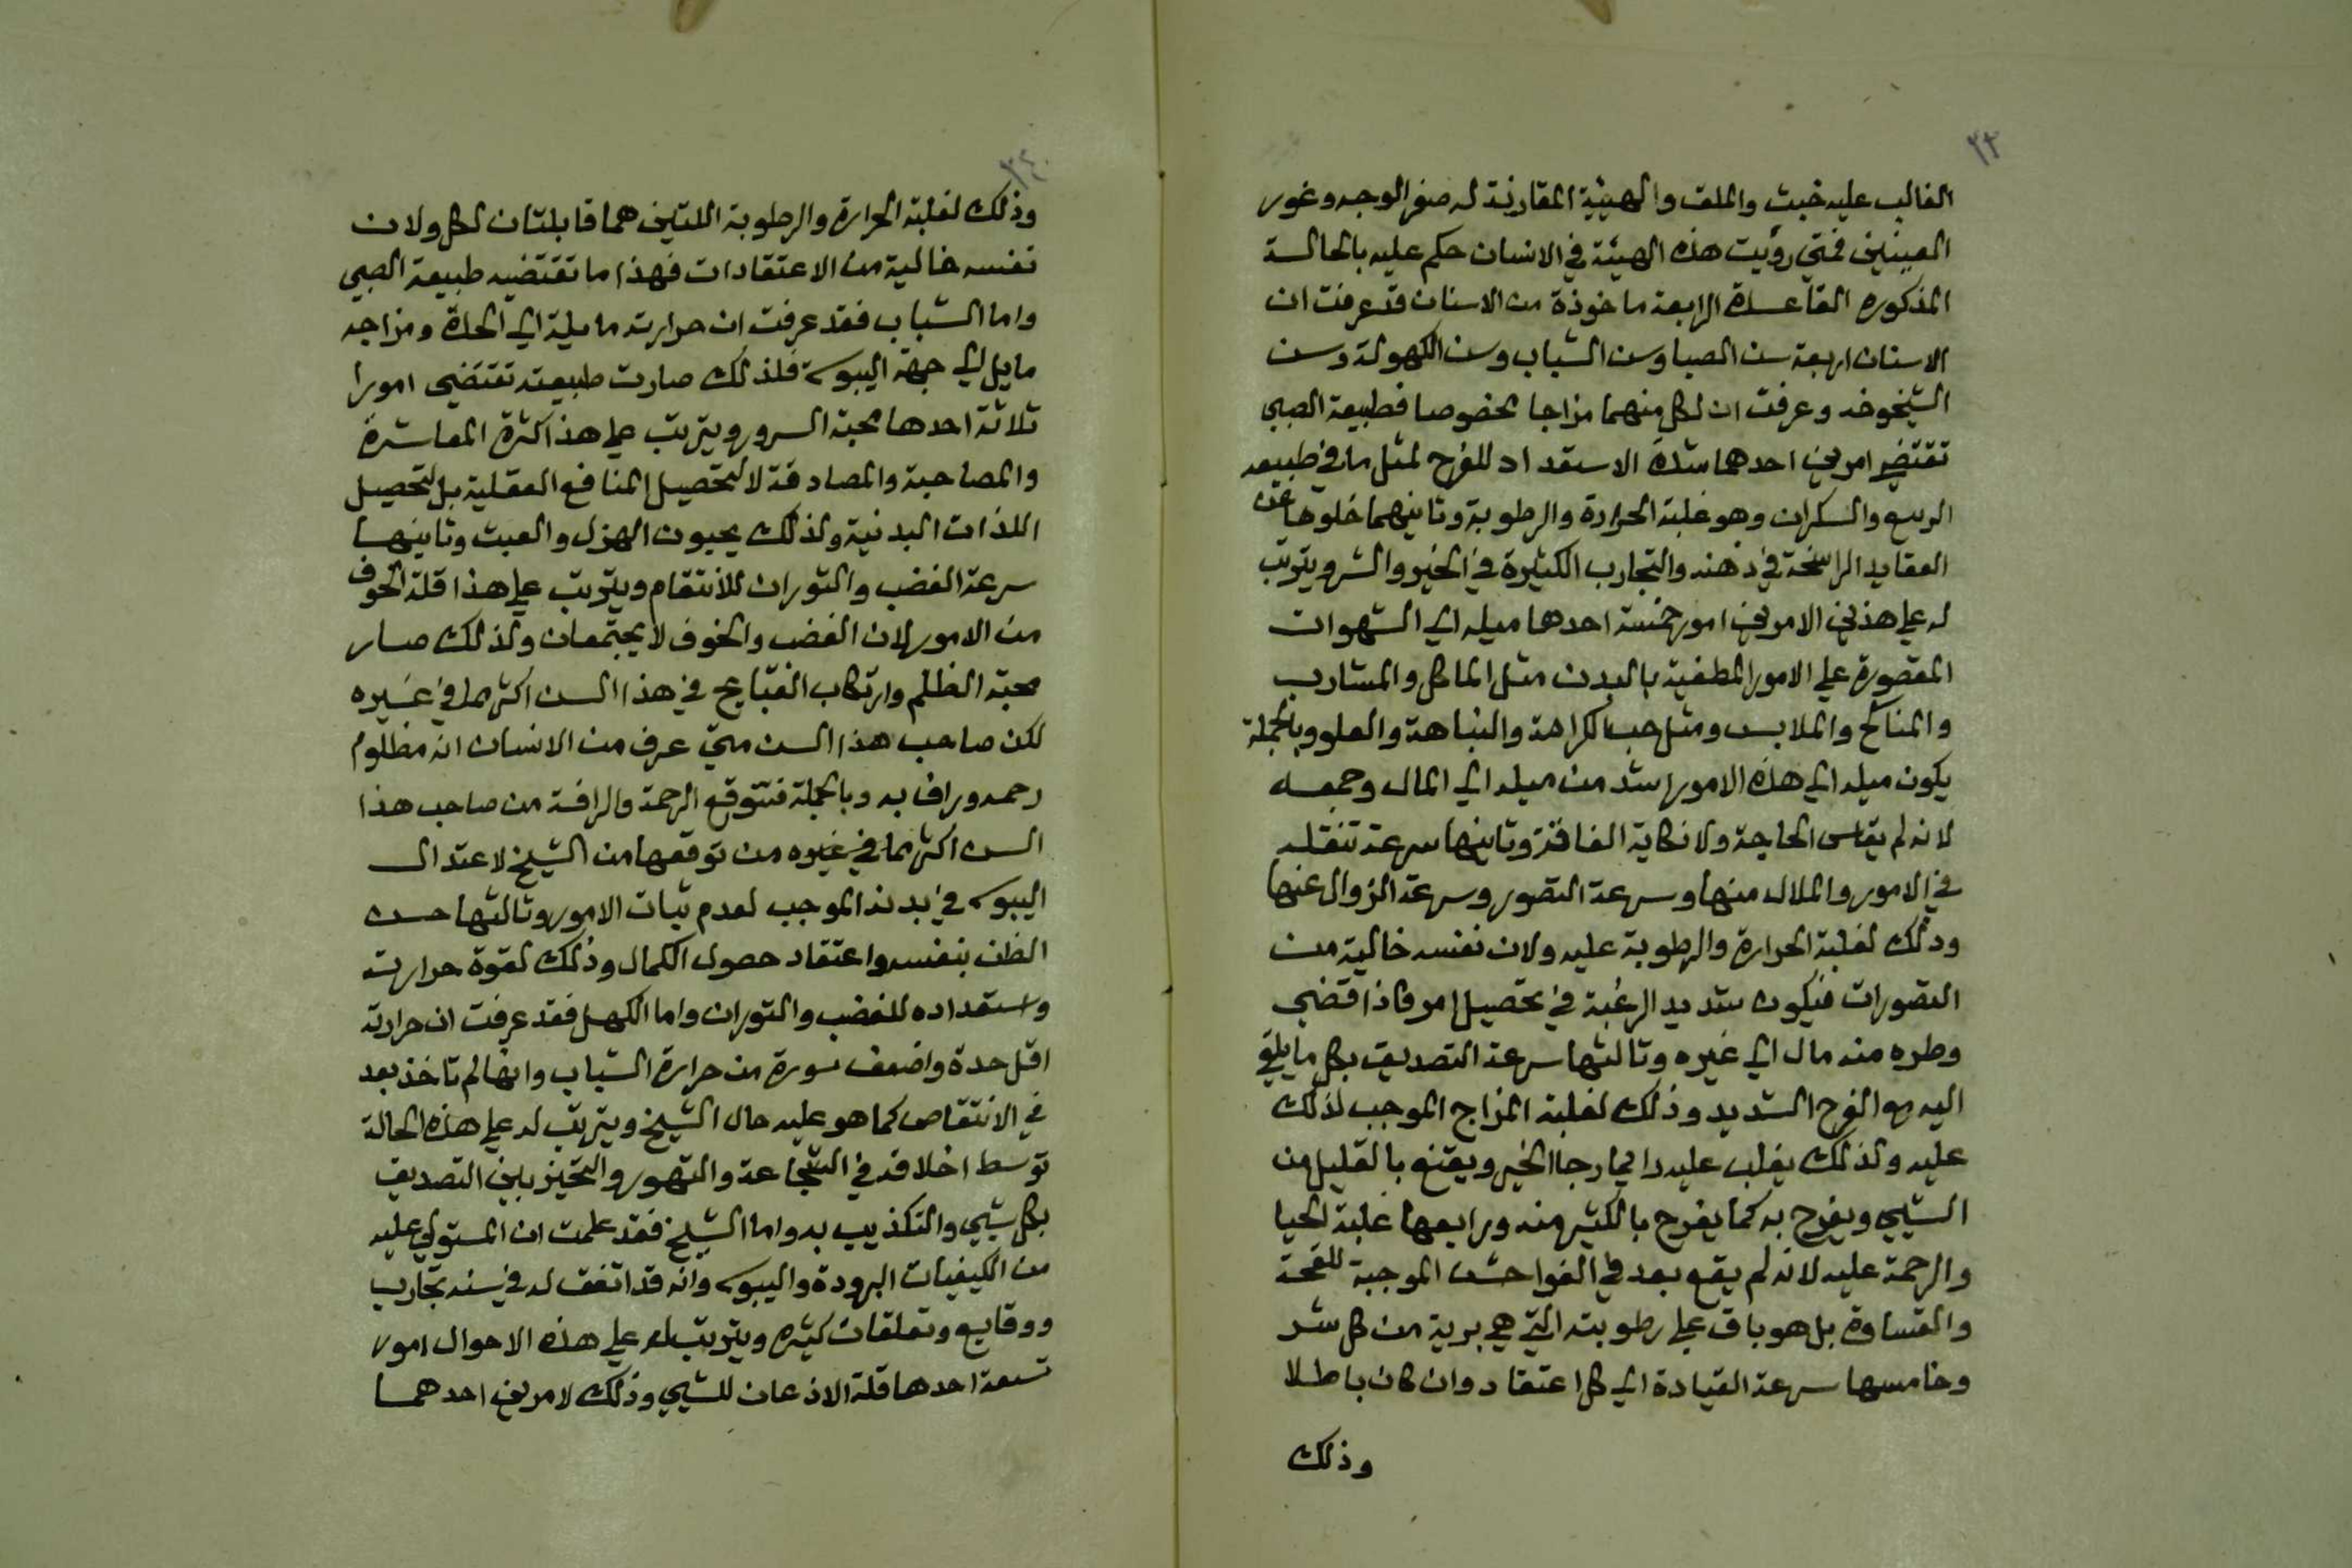 ٣٣
الغالب عليه خبث والملق والهيئة المقارنة له صفر الوجه وغور
العينين فمتي رؤيت هذه الهيئة في الانسان حكم عليه بالحالة
المذكوره القاعدة الرابعة ماخوذة من الاسنان قد عرفت ان
الاسنان اربعة سن الصبا وسن الشباب وسن الكهولة وسن
الشيخوخه وعرفت ان لكل منهما مزاجا مخصوصا فطبيعة الصبي
تقتضي امرين احدهما شدة الاستعداد للفرح لمثل ما في طبيعه
الربيع والسكران وهو غلبة الحرارة والرطوبة وثانيهما خلوها عن
العقايد الراسخة في ذهنه والتجارب الكثيرة في الخير والشر ويترتب
له علي هذين الامرين امور خمسة احدها ميله الي الشهوات
المقصورة علي الامور المطفية بالبدن مثل الماكل والمشارب
والمناكح والملابس ومثل حب الكراهة والنباهة والعلو وبالجملة
يكون ميله الي هذه الامور اشد من ميله الي المال وجمعه
لانه لم يقاس الحاجة ولا نكاية الفاقة وثانيها سرعة تنقله
في الامور والملال منها وسرعة التصور وسرعة الزوال عنها
وذلك لغلبة الحرارة والرطوبة عليه ولان نفسه خالية من
التصورات فيكون شديد الرغبة في تحصيل امر فاذا قضي
وطره منه مال الي غيره وثالثها سرعة التصديق بكل ما يلقي
اليه هو الفرح الشديد وذلك لغلبة المزاج الموجب لذلك
عليه ولذلك يغلب عليه دايما رجا الخير ويقنع بالقليل من
الشيي ويفرح به كما يفرح بالكثير منه ورابعها غلبة الحيا
والرحمة عليه لانه لم يقع بعد في الفواحش الموجبة للقحة
والقساوة بل هو باق علي رطوبته التي هي برية من كل شر
وخامسها سرعة القيادة الي كل اعتقاد وان كان باطلا
وذلك
٣٤
وذلك لغلبة الحرارة والرطوبة اللتين هما قابلتان لكل ولان
نفسه خالية من الاعتقادات فهذا ما تقتضيه طبيعة الصبي
واما الشباب فقد عرفت ان حرارته مايلة الي الحدة ومزاجه
مايل الي جهة اليبوسة فلذلك صارت طبيعته تقتضي امورا
ثلاثة احدها محبة السرور ويترتب علي هذا كثرة المعاشرة
والمصاحبة والمصادقة لا لتحصيل المنافع العقلية بل لتحصيل
اللذات البدنية ولذلك يحبون الهزل والعبث وثانيها
سرعة الغضب والثوران للانتقام ويترتب علي هذا قلة الخوف
من الامور لان الغضب والخوف لا يجتمعان ولذلك صار
محبة الظلم وارتكاب القبايح في هذا السن اكثر مما في غيره
لكن صاحب هذا السن متي عرف من الانسان انه مظلوم
رحمه وراف به وبالجملة فتتوقع الرحمة والرافة من صاحب هذا
السن اكثر مما في غيره من توقعها من الشيخ لاعتدال
اليبوسة في بدنه الموجب لعدم ثبات الامور وثالثها حسن
الظن بنفسه واعتقاد حصول الكمال وذلك لقوة حرارته
واستعداده للغضب والثوران واما الكهل فقد عرفت ان حرارته
اقل حدة واضعف سورة من حرارة الشباب وانها لم تاخذ بعد
في الانتقاص كما هو عليه حال الشيخ ويترتب له علي هذه الحالة
توسط اخلاقه في الشجاعة والتهور والتحيز بين التصديق
بكل شيي والتكذيب به واما الشيخ فقد علمت ان المستولي عليه
من الكيفيات البرودة واليبوسة وانه قد اتفق له في سنه تجارب
ووقايع وتعلقات كثيره ويترتب له علي هذه الاحوال امور
تسعة احدها قلة الاذعان للشيي وذلك لامرين احدهما